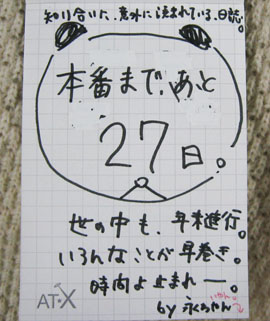 知り合いに、意外に読まれている、日記。
本番まで、あと
27
日。
世の中も、年末進行。
いろんなことが早巻き。
時間よ止まれー。
by 永くゃん
AT-X